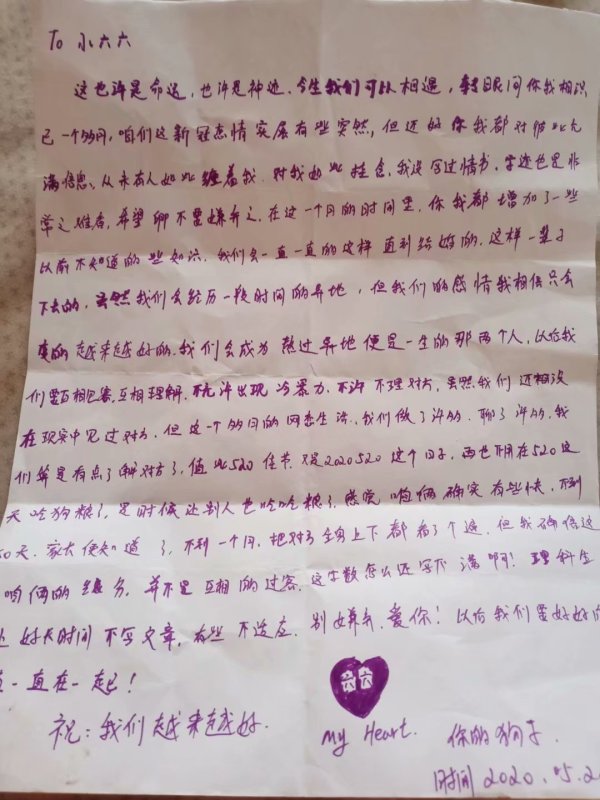 To 小六六
这也许是命运，也许是神迹，今生我们可以相遇，转眼间你我相识
已一个多月，咱们这新冠恋情实属有些突然，但还好你我都对彼此充
满信息，从未有人如此缠着我，对我如此挂念，我没写过情书，字迹也是非
常之难看，希望卿不要嫌弃之，在这一个月的时间里，你我都增加了一些
以前不知道的些知识，我们会一直一直的这样直到结婚的，这样一辈子
下去的，虽然我们会经历一段时间的异地，但我们的感情我相信只会
变的越来越好的，我们会成为熬过异地便是一生的那两个人，以后我
们要互相包容，互相理解，不允许出现冷暴力，不许不理对方，虽然我们还相没
在现实中见过对方，但这一个多月的网恋生活，我们做了许多，聊了许多，我
们算是有点了解对方了，值此520佳节，又是2020520这个日子，再也不用在520这
天吃狗粮了，是时候让别人也吃吃粮了，感觉咱俩确实有些快，不到
天，家长便知道了，不到一个月，把对方全身上下都看了个遍，但我确信这
咱俩的缘分，并不是互相的过客，这字数怎么还写不满啊！理科生
好长时间不写文章，有些不适应，别嫌弃，爱你！以后我们要好好的
一直在一起！
六六
祝：我们越来越好.
My Heart. 你的狗子.
时间 2020.05.2